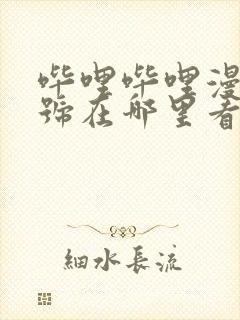 哔哩哔哩漫
號在哪里看
細水長流